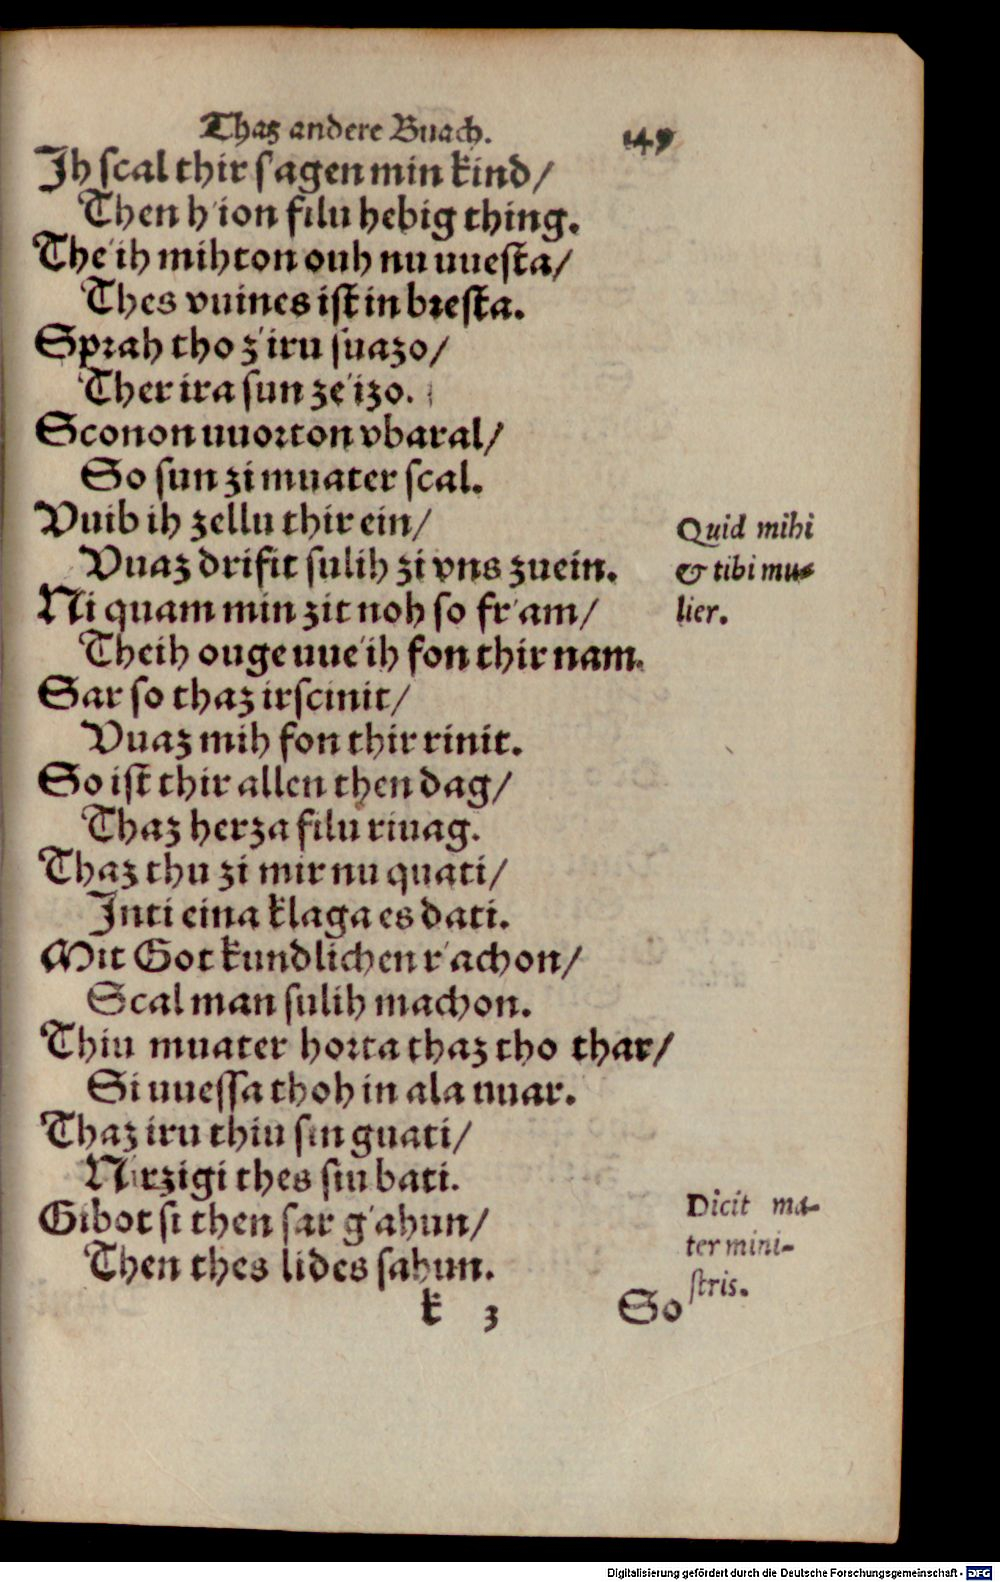 Thaz andere Buach. 149
Jh scal thir s'agen min kind/
Then h'ion filu hebig thing.
The'ih mihton ouh nu uuesta/
Thes vuines ist in bresta.
Sprah tho z'iru suazo/
Ther ira sun ze'izo.
Sconon uuorton vbaral/
So sun zi muater scal.
Vuib ih zellu thir ein/
Vuaz drifit sulih zi vns zuein.
Ni quam min zit noh so fr'am/
Theih ouge uue'ih fon thir nam.
Sar so thaz irscinit/
Vuaz mih fon thir rinit.
So ist thir allen then dag/
Thaz herza filu riuag.
Thaz thu zi mir nu quati/
Inti eina klaga es dati.
Mit Got kundlichen r'achon/
Scal man sulih machon.
Thiu muater horta thaz tho thar/
Si uuessa thoh in ala uuar.
Thaz iru thiu sin guati/
Nirzigi thes siu bati.
Gibot si then sar g'ahun/
Then thes lides sahun.
k 3 So
Quid mihi
& tibi mu-
lier.
Dicit ma-
ter mini-
stris.
Digitalisierung gefördert durch die Deutsche Forschungsgemeinschaft - DFG